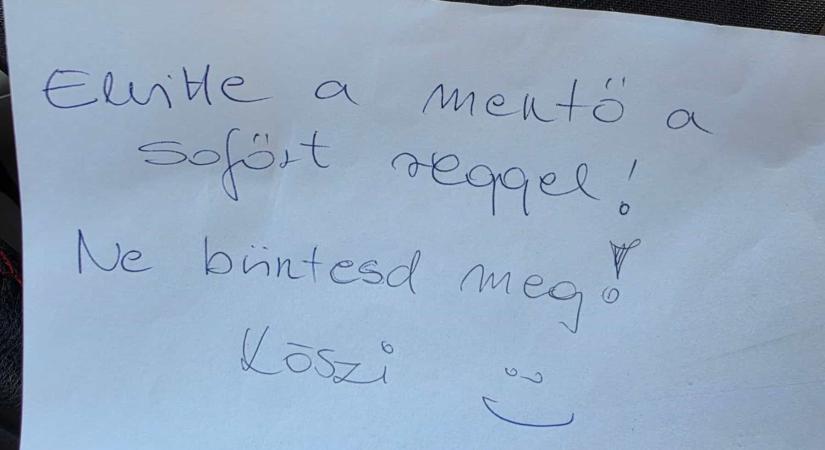 Elvitte a mentő a
sofőrt reggel!
Ne büntesd meg!
Köszi